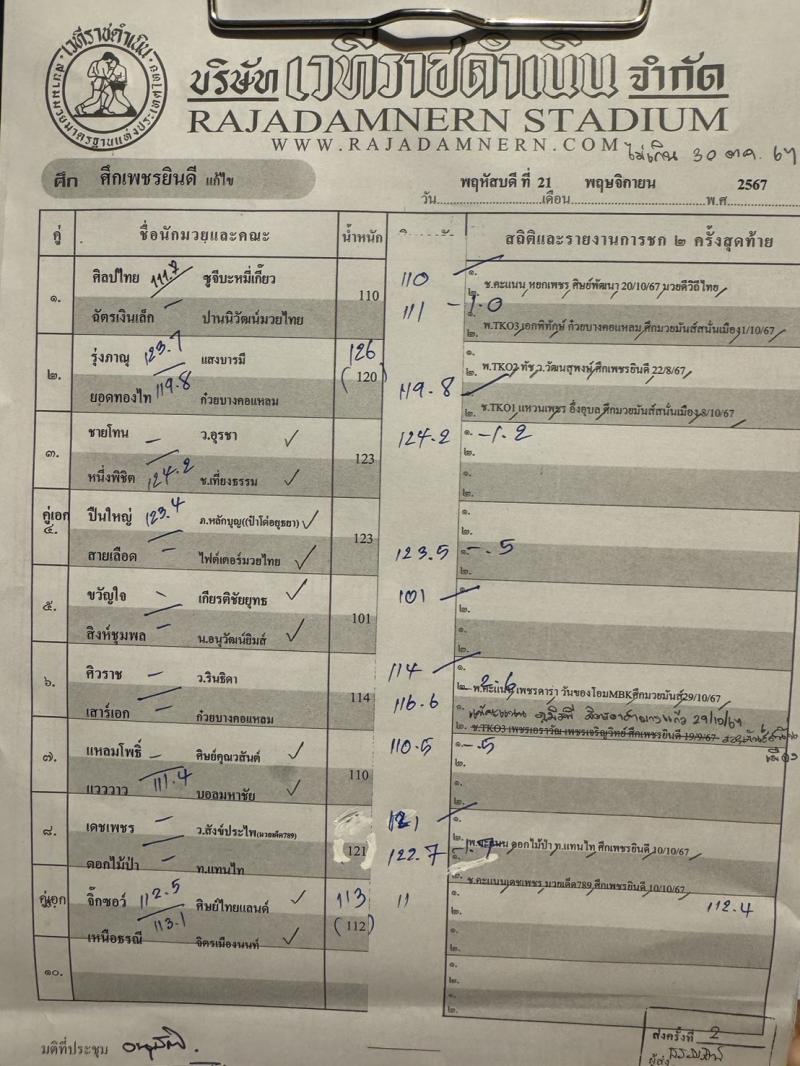 เวทีราชดำเนิน
สนามมวยมาตรฐานแห่งประเทศไทย
บริษัท เวทีราชดำเนิน จำกัด
RAJADAMNERN STADIUM
WWW.RAJADAMNERN.COM
ไม่เกิน 30 ตค. 67
ศึก ศึกเพชรยินดี แก้ไข
พฤหัสบดี ที่ 21 พฤษจิกายน 2567
วัน เดือน พ.ศ
คู่ ชื่อนักมวยและคณะ น้ำหนัก สถิติและรายงานการชก ๒ ครั้งสุดท้าย
๑. ศิลป์ไทย 111.7 ซูจีบะหมี่เกี๊ยว 110 110 ๑.
๒. ช.คะแนน หยกเพชร ศิษย์พัฒนา 20/10/67 มวยดีวิถีไทย
ฉัตรเงินเล็ก ปานนิวัฒน์มวยไทย 111 - 1.0 ๑.
๒. พ.TKO3 เอกพิทักษ์ ก๋วยบางคอแหลม ศึกมวยมันส์สนั่นเมือง 1/10/67
๒. รุ่งภาณุ 123.7 แสงบารมี 126 (120) ๑.
๒. พ.TKO2 ทัช ว.วัฒนสุพงษ์ ศึกเพชรยินดี 22/8/67
ยอดทองไท 119.8 ก๋วยบางคอแหลม 119.8 ๑.
๒. ช.TKO1 แหวนเพชร อึ่งอุบล ศึกมวยมันส์สนั่นเมือง 8/10/67
๓. ชายโทน ว.อุรชา 123 124.2 ๑. -1.2
๒.
หนึ่งพิชิต 124.2 ช.เที่ยงธรรม ๑.
๒.
คู่เอก ๔. ปืนใหญ่ 123.4 ภ.หลักบุญ((ป๋าโต่อยุธยา) 123 ๑.
๒.
สายเลือด ไฟต์เตอร์มวยไทย 123.5 ๑. - .5
๒.
๕. ขวัญใจ เกียรติชัยยุทธ 101 101 ๑.
๒.
สิงห์ชุมพล น.อนุวัฒน์ยิมส์ ๑.
๒.
๖. ศิวราช ว.รินธิดา 114 114 ๑.
๒. พ.คะแนน เพชรดารา วันของโอมMBK ศึกมวยมันส์ 29/10/67
เสาร์เอก ก๋วยบางคอแหลม 116.6 ๑. 29/10/67
๒. ช.TKO3 เพชรเอราวัณ เพชรเจริญวิทย์ ศึกเพชรยินดี 19/9/67
๗. แหลมโพธิ์ ศิษย์คุณวสันต์ 110 110.5 ๑. - .5
๒.
แวววาว 111.4 บอลมหาชัย ๑.
๒.
๘. เดชเพชร ว.สังข์ประไพ(มวยเด็ด789) 121 121 ๑.
๒. พ.คะแนน ดอกไม้ป่า ท.แทนไท ศึกเพชรยินดี 10/10/67
ดอกไม้ป่า ท.แทนไท 122.7 ๑.
๒. ช.คะแนน เดชเพชร มวยเด็ด789 ศึกเพชรยินดี 10/10/67
คู่เอก จิ๊กซอว์ 112.5 ศิษย์ไทยแลนด์ 113 (112) 11 ๑.
๒. 112.4
เหนือธรณี 113.1 จิตรเมืองนนท์ ๑.
๒.
๑๐. ๑.
๒.
๑.
๒.
มติที่ประชุม อนุมัติ.
ส่งครั้งที่ 2
ผู้ส่ง